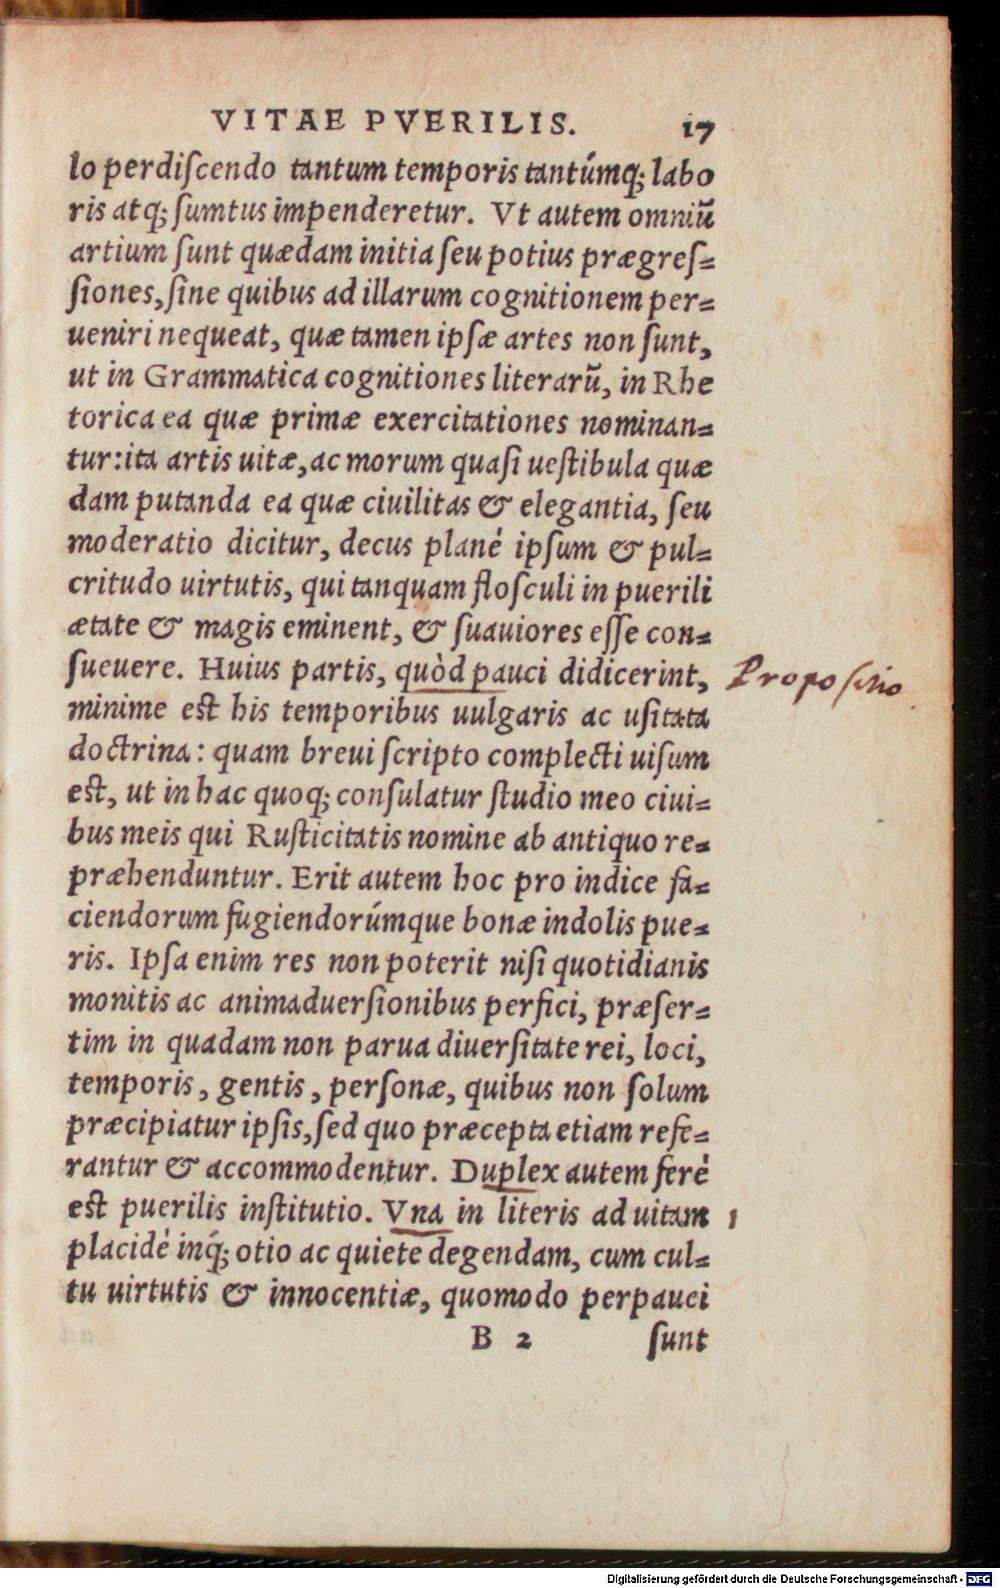 VITAE PVERILIS. 17
lo perdiſcendo tantum temporis tantúmq; labo
ris atq; ſumtus impenderetur. Vt autem omniũ
artium ſunt quædam initia ſeu potius prægreſ=
ſiones, ſine quibus ad illarum cognitionem per=
ueniri nequeat, quæ tamen ipſæ artes non ſunt,
ut in Grammatica cognitiones literarũ, in Rhe
torica ea quæ primæ exercitationes nominan=
tur: ita artis uitæ, ac morum quaſi ueſtibula quæ
dam putanda ea quæ ciuilitas & elegantia, ſeu
moderatio dicitur, decus planè ipſum & pul=
critudo uirtutis, qui tanquam floſculi in puerili
ætate & magis eminent, & ſuauiores eſſe con=
ſueuere. Huius partis, quòd pauci didicerint, Propoſitio
minime eſt his temporibus uulgaris ac uſitata
doctrina: quam breui ſcripto complecti uiſum
eſt, ut in hac quoq; conſulatur ſtudio meo ciui=
bus meis qui Ruſticitatis nomine ab antiquo re=
præhenduntur. Erit autem hoc pro indice fa=
ciendorum fugiendorúmque bonæ indolis pue=
ris. Ipſa enim res non poterit niſi quotidianis
monitis ac animaduerſionibus perfici, præſer=
tim in quadam non parua diuerſitate rei, loci,
temporis, gentis, perſonæ, quibus non ſolum
præcipiatur ipſis, ſed quo præcepta etiam refe=
rantur & accommodentur. Duplex autem ferè
eſt puerilis inſtitutio. Vna in literis ad uitam 1
placidè inq́; otio ac quiete degendam, cum cul=
tu uirtutis & innocentiæ, quomodo perpauci
B 2 ſunt
Digitalisierung gefördert durch die Deutsche Forschungsgemeinschaft - DFG